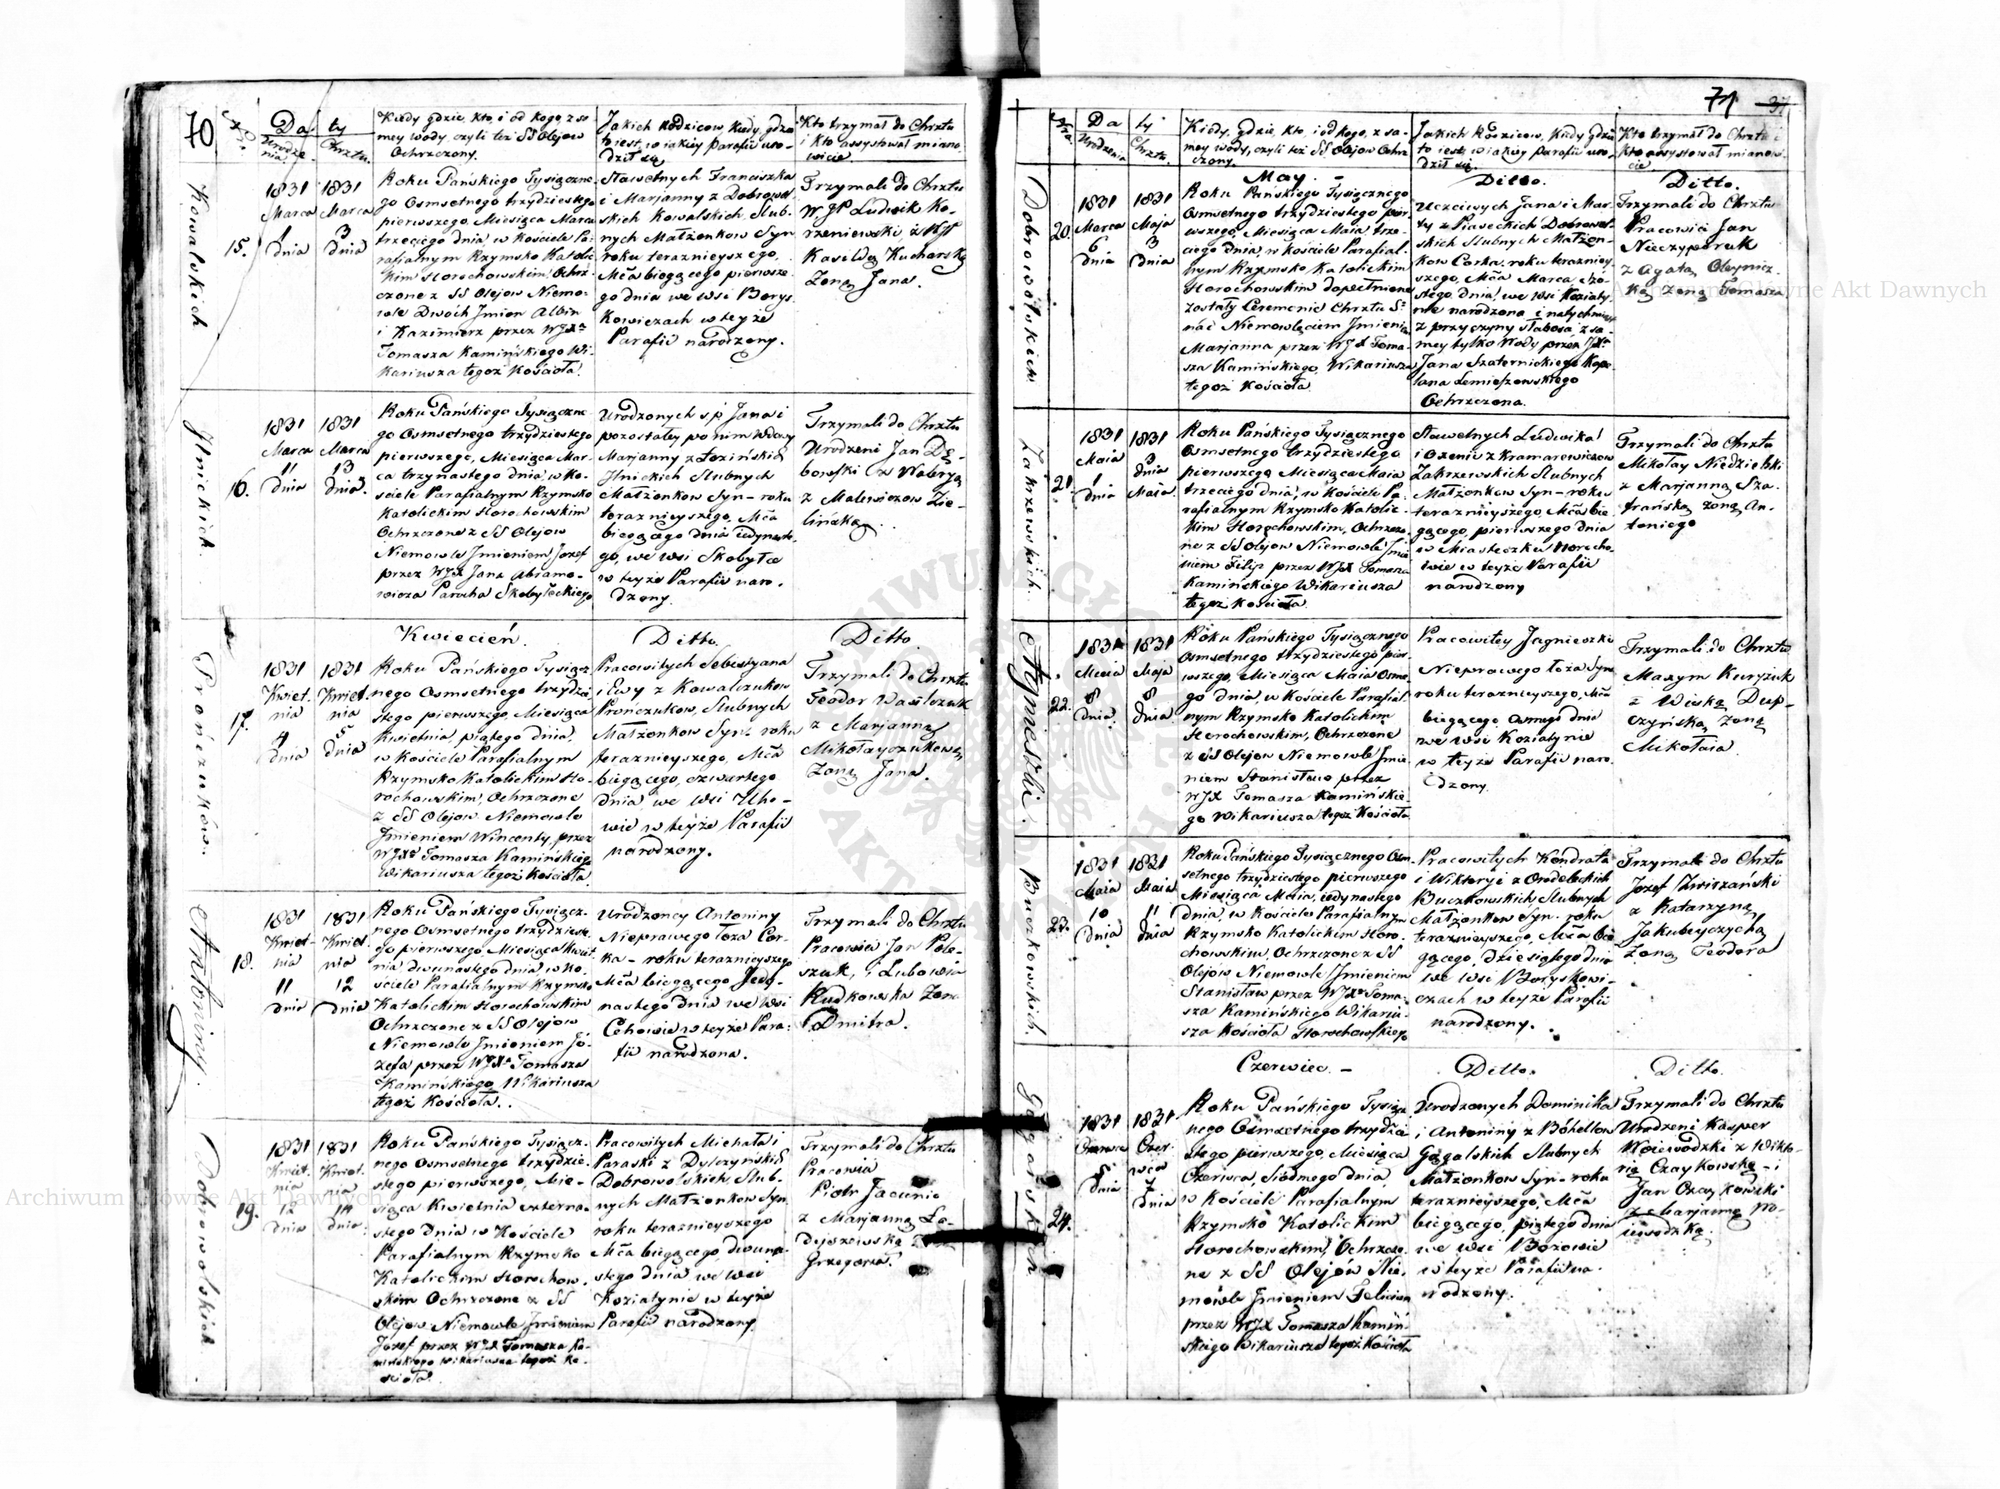 70
Nro.
Daty
Urodzenia
Chrztu
Kiedy gdzie, kto, i od kogo, z sa-
mey wody, czyli też SS Olejow
Ochrzczony.
Jakich Rodzicow, kiedy, gdzie
to iest, w iakiey Parafii uro-
dził się
Kto trzymał do Chrztu
i kto assystował miano-
wicie
Kowalskich
15.
1831
Marca
1
dnia
1831
Marca
3
dnia
Roku Pańskiego Tysiączne-
go Osmsetnego trzydziestego
pierwszego, Miesiąca Marca
trzeciego dnia, w Kościele Pa-
rafialnym Rzymsko Katolic-
kim Horochowskim, Ochrz-
czone z SS Olejow Niemo-
wle Dwoch Jmion Albin
i Kazimierz przez WJX
Tomasza Kamińskiego Wi-
kariusza tegoż Kościoła.
Sławetnych Franciszka
i Marjanny z Dobrowol-
skich Kowalskich, Slub-
nych Małżonkow Syn
roku teraznieyszego,
Mca biegącego pierwsze-
go dnia we Wsi Borys-
kowiczach w teyże
Parafii narodzony.
Trzymali do Chrztu
WJP Ludwik Ko-
rzeniewski z WJP
Kasildą Kucharską
Zoną Jana.
Jlnickich
16.
1831
Marca
11
dnia
1831
Marca
13
dnia
Roku Pańskiego Tysiączne-
go Osmsetnego trzydziestego
pierwszego, Miesiąca Mar-
ca trzynastego dnia, w Ko-
ściele Parafialnym Rzymsko
Katolickim Horochowskim
Ochrzczone z SS Olejow
Niemowle Jmieniem Jozef
przez WJX Jana Abramo-
wicza Parocha Skobyłeckiego
Urodzonych sp Jana i
pozostałey po nim Wdowy
Marjanny z Łozińskich
Jlnickich Slubnych
Małżonkow Syn - roku
teraznieyszego, Mca
biegącego dnia iedynaste-
go, we wsi Skobyłce
w teyże Parafii naro-
dzony.
Trzymali do Chrztu
Urodzeni Jan Dę-
bowski z Waleryą
z Malewiczow Zie-
lińską.
Prończuków.
17.
1831
Kwiet-
nia
4
dnia
1831
Kwiet-
nia
5
dnia
Kwiecień.
Roku Pańskiego Tysiącz-
nego Osmsetnego trzydzie-
stego pierwszego, Miesiąca
Kwietnia, piątego dnia,
w Kościele Parafialnym
Rzymsko Katolickim Ho-
rochowskim, Ochrzczone
z SS Olejow Niemowle
Jmieniem Wincenty, przez
WJX Tomasza Kamińskiego
Wikariusza tegoż Kościoła.
Ditto.
Pracowitych Sebestyana
i Ewy z Kowalczukow
Prończukow, Slubnych
Małżonkow Syn - roku
teraznieyszego, Mca
biegącego, czwartego
dnia we wsi Uho-
wie w teyże Parafii
narodzony.
Ditto.
Trzymali do Chrztu
Teodor Wasilczuk
z Marjanną
Mikołayczukową
Zoną Jana.
Antoniny.
18.
1831
Kwiet-
nia
11
dnia
1831
Kwiet-
nia
12
dnia
Roku Pańskiego Tysiącz-
nego Osmsetnego trzydzieste-
go pierwszego Miesiąca Kwiet-
nia dwunastego dnia, w Ko-
ściele Parafialnym Rzymsko
Katolickim Horochowskim
Ochrzczone z SS Olejow
Niemowle Jmieniem Jo-
zefa przez WJX Tomasza
Kamińskiego, Wikariusza
tegoż Kościoła.
Urodzoney Antoniny
Nieprawego Łoża Cor-
ka - roku teraznieyszego
Mca biegącego Jedy-
nastego dnia we wsi
Cehowie w teyże Para-
fii narodzona.
Trzymali do Chrztu
Pracowici Jan Pole-
szuk, i Lubowia
Rudkowska Zona
Dmitra.
Dobrowolskich
19.
1831
Kwiet-
nia
12
dnia
1831
Kwiet-
nia
14
dnia
Roku Pańskiego Tysiącz-
nego Osmsetnego trzydzie-
stego pierwszego, Mie-
siąca Kwietnia czterna-
stego dnia w Kościele
Parafialnym Rzymsko
Katolickim Horochow-
skim Ochrzczone z SS
Olejow Niemowle Jmieniem
Jozef przez WJX Tomasza Ka-
mińskiego Wikariusza tegoż Ko-
ścioła.
Pracowitych Michała i
Paraski z Dylczyńskich
Dobrowolskich Slub-
nych Małżonkow Syn
roku teraznieyszego
Mca biegącego, dwuna-
stego dnia we wsi
Koziatynie w teyże
Parafii narodzony.
Trzymali do Chrztu
Pracowici
Piotr Jacunio
z Marjanną
Grzegorza.
71
37
Nro.
Daty
Urodzenia
Chrztu
Kiedy, gdzie, kto, i od kogo, z sa-
mey wody, czyli też SS Olejow Ochrz-
czony.
Jakich Rodzicow, kiedy gdzie
to iest, w iakiey Parafii uro-
dził się.
Kto trzymał do Chrztu i
kto assystował mianowi-
cie
Dobrowolskich
20.
1831
Marca
6
dnia
1831
Maja
3
dnia
May. -
Roku Pańskiego Tysiącznego
Osmsetnego trzydziestego pier-
wszego, Miesiąca Maia, trze-
ciego dnia, w Kościele Parafial-
nym Rzymsko Katolickim
Horochowskim dopełnione
zostały Ceremonie Chrztu S
nad Niemowlęciem Jmieniem
Marjanna przez WJX Toma-
sza Kamińskiego, Wikariusza
tegoż Kościoła.
Ditto.
Uczciwych Jana i Mar-
ty z Piaseckich Dobrowol-
skich Slubnych Małżon-
kow Corka, roku teraźniey-
szego, Mca Marca, szó-
stego dnia, we wsi Koziaty-
nie narodzona i natychmiast
z przyczyny słabości z sa-
mey tylko Wody przez JX
Jana Szaternickiego Kape-
lana Łemieszowskiego
Ochrzczona.
Ditto.
Trzymali do Chrztu
Pracowici Jan
Nieczyporuk
z Agatą Oleynic-
ką Zoną Tomasza
Zakrzewskich.
21.
1831
Maia
1
dnia
1831
3
dnia
Maia.
Roku Pańskiego Tysiącznego
Osmsetnego trzydziestego
pierwszego Miesiąca Maia
trzeciego dnia, w Kościele Pa-
rafialnym Rzymsko Katolic-
kim Horochowskim, Ochrzczo-
ne z SS Olejow Niemowle Jmie-
niem Filip przez WJX Tomasza
Kamińskiego Wikariusza
tegoż Kościoła.
Sławetnych Ludwika
i Ozenii z Kramarewiczow
Zakrzewskich Slubnych
Małżonkow Syn - roku
teraznieyszego, Mca bie-
gącego, pierwszego dnia
w Miasteczku Horocho-
wie w teyże Parafii
narodzony
Trzymali do Chrztu
Mikołay Niedzielski
z Marjanną Sza-
frańską Zoną An-
toniego
Agnieszki.
22.
1831
Maia
8
dnia
1831
Maja
8
dnia
Roku Pańskiego Tysiącznego
Osmsetnego trzydziestego pier-
wszego, Miesiąca Maia Osme-
go dnia, w Kościele Parafial-
nym Rzymsko Katolickim
Horochowskim, Ochrzczone
z SS Olejow Niemowle Jmie-
niem Stanisław przez
WJX Tomasza Kamińskie-
go Wikariusza tegoż Kościoła.
Pracowitey Jagnieszki
Nieprawego łoża Syn
roku teraznieyszego, Mca
biegącego, Osmego dnia
we wsi Koziatynie
w teyże Parafii naro-
dzony.
Trzymali do Chrztu
Maxym Kuryżuk
z Wiską Dup-
czyńską Zoną
Mikołaia.
Buczkowskich.
23.
1831
Maia
10
dnia
1831
Maia
11
dnia
Roku Pańskiego Tysiącznego Osm-
setnego trzydziestego pierwszego
Miesiąca Maia, iedynastego
dnia, w Kościele Parafialnym
Rzymsko Katolickim Horo-
chowskim, Ochrzczone z SS
Olejow Niemowle Jmieniem
Stanisław przez WJX Toma-
sza Kamińskiego Wikariu-
sza Kościoła Horochowskiego
Pracowitych Kondrata
i Wiktoryi z Orodeleckich
Buczkowskich Slubnych
Małżonkow Syn - roku
teraznieyszego, Mca bie-
gącego, Dziesiątego dnia
we wsi Boryskowi-
czach w teyże Parafii
narodzony.
Trzymali do Chrztu
Jozef Zwiszański
z Katarzyną
Jakubczychą
Zoną Teodora
Gągalskich
24.
1831
Czerwca
5
dnia
1831
Czer-
wca
7
dnia
Czerwiec. -
Roku Pańskiego Tysiącz-
nego Osmsetnego trzydzie-
stego pierwszego, Miesiąca
Czerwca, Siódmego dnia,
w Kościele Parafialnym
Rzymsko Katolickim
Horochowskim, Ochrzczo-
ne z SS Olejów Nie-
mowle Jmieniem Felician
przez WJX Tomasza Kamiń-
skiego Wikariusza tegoż Kościoła
Ditto.
Urodzonych Dominika
i Antoniny z Bóhellow
Gągalskich Slubnych
Małżonkow Syn - roku
teraznieyszego, Mca
biegącego, piątego dnia
we wsi Bożowie
w teyże Parafii na-
rodzony.
Ditto.
Trzymali do Chrztu
Urodzeni Kasper
Woiewodzki z Wikto-
rią Czaykowską - i
Jan Czaykowski
z Marjanną Wo-
iewodzką.
Archiwum Główne Akt Dawnych
Archiwum Główne Akt Dawnych
ARCHIWUM GŁÓWNE AKT DAWNYCH